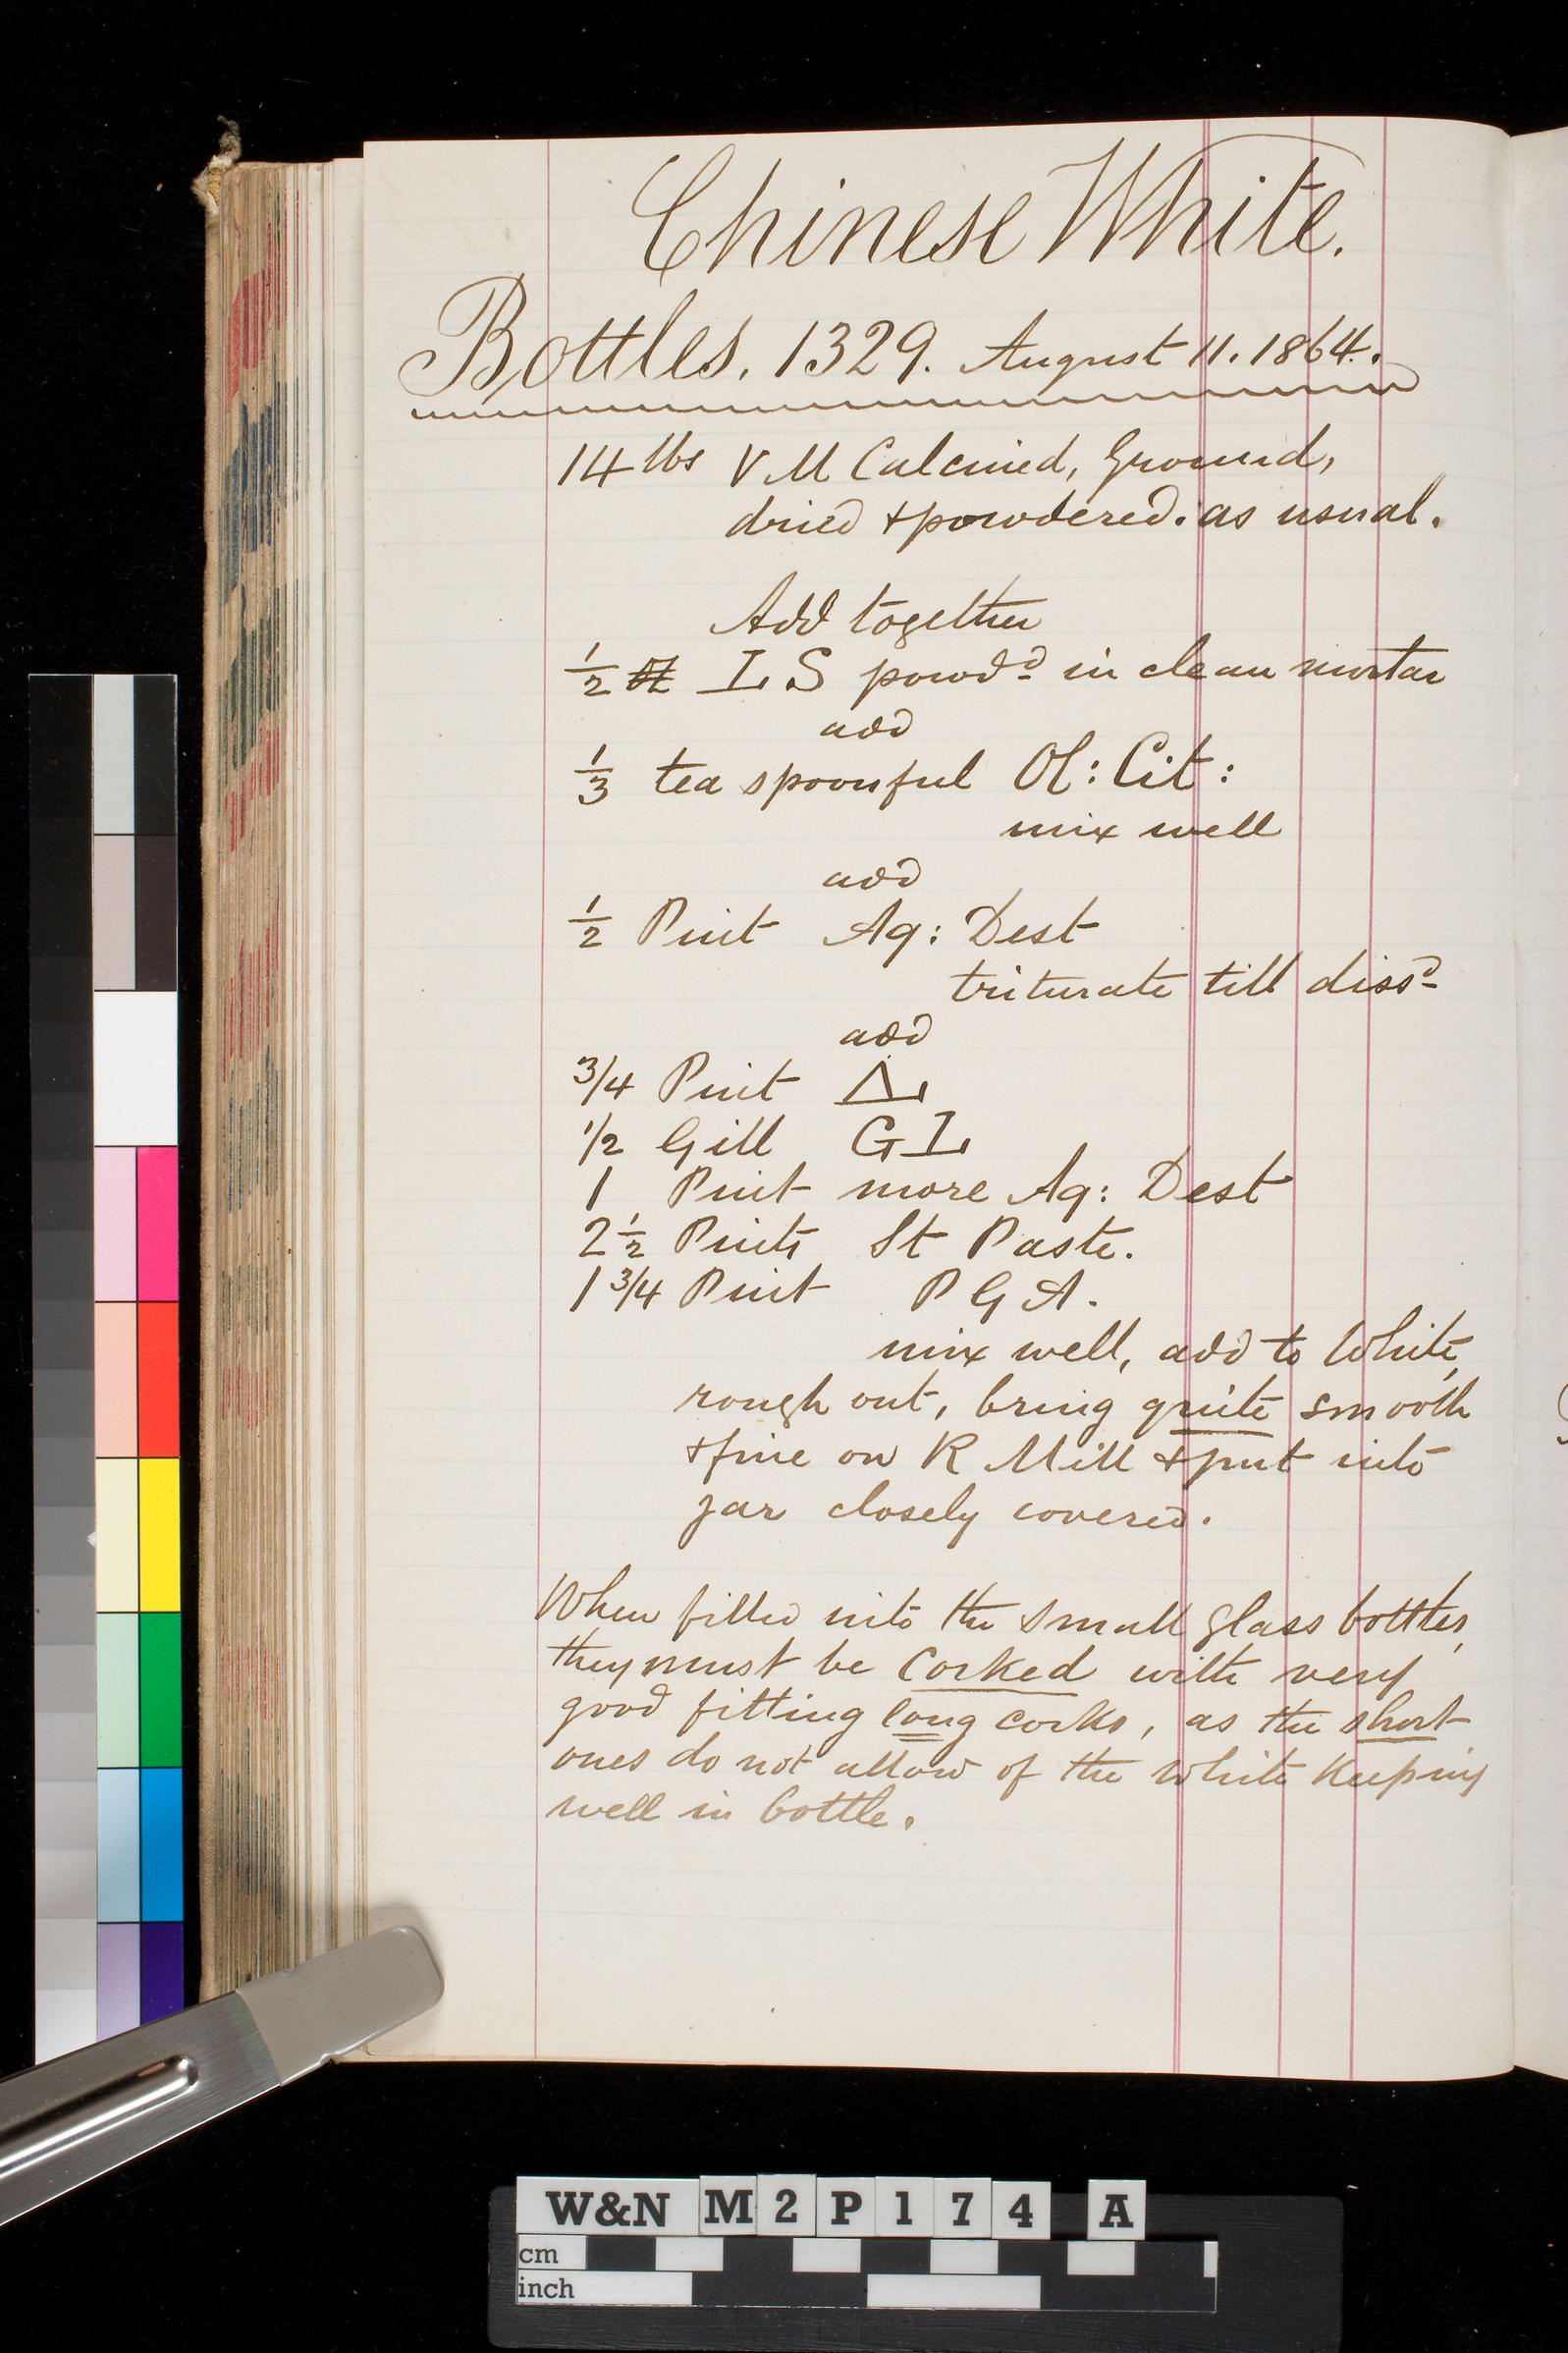 Chinese White.
Bottles. 1329. August 11. 1864.
14 lbs V M Calcined, Ground,
dried + powdered. as usual.
Add together
1/2 ℔ L S powdd in clean mortar
add
1/3 tea spoonful Ol: Cit:
mix well
add
1/2 Pint Aq: Dest
triturate till dissd
add
3/4 Pint
1/2 Gill G L
1 Pint more Aq: Dest
2 1/2 Pints St Paste.
1 3/4 Pint P G A.
mix well, add to White,
rough out, bring quite smooth
+ fine on R Mill + put into
jar closely covered.
When filled into the small glass bottles,
they must be Corked with very
good fitting long corks, as the short
ones do not allow of the White Keeping
well in bottle.
W&N M2P174 A
cm
inch